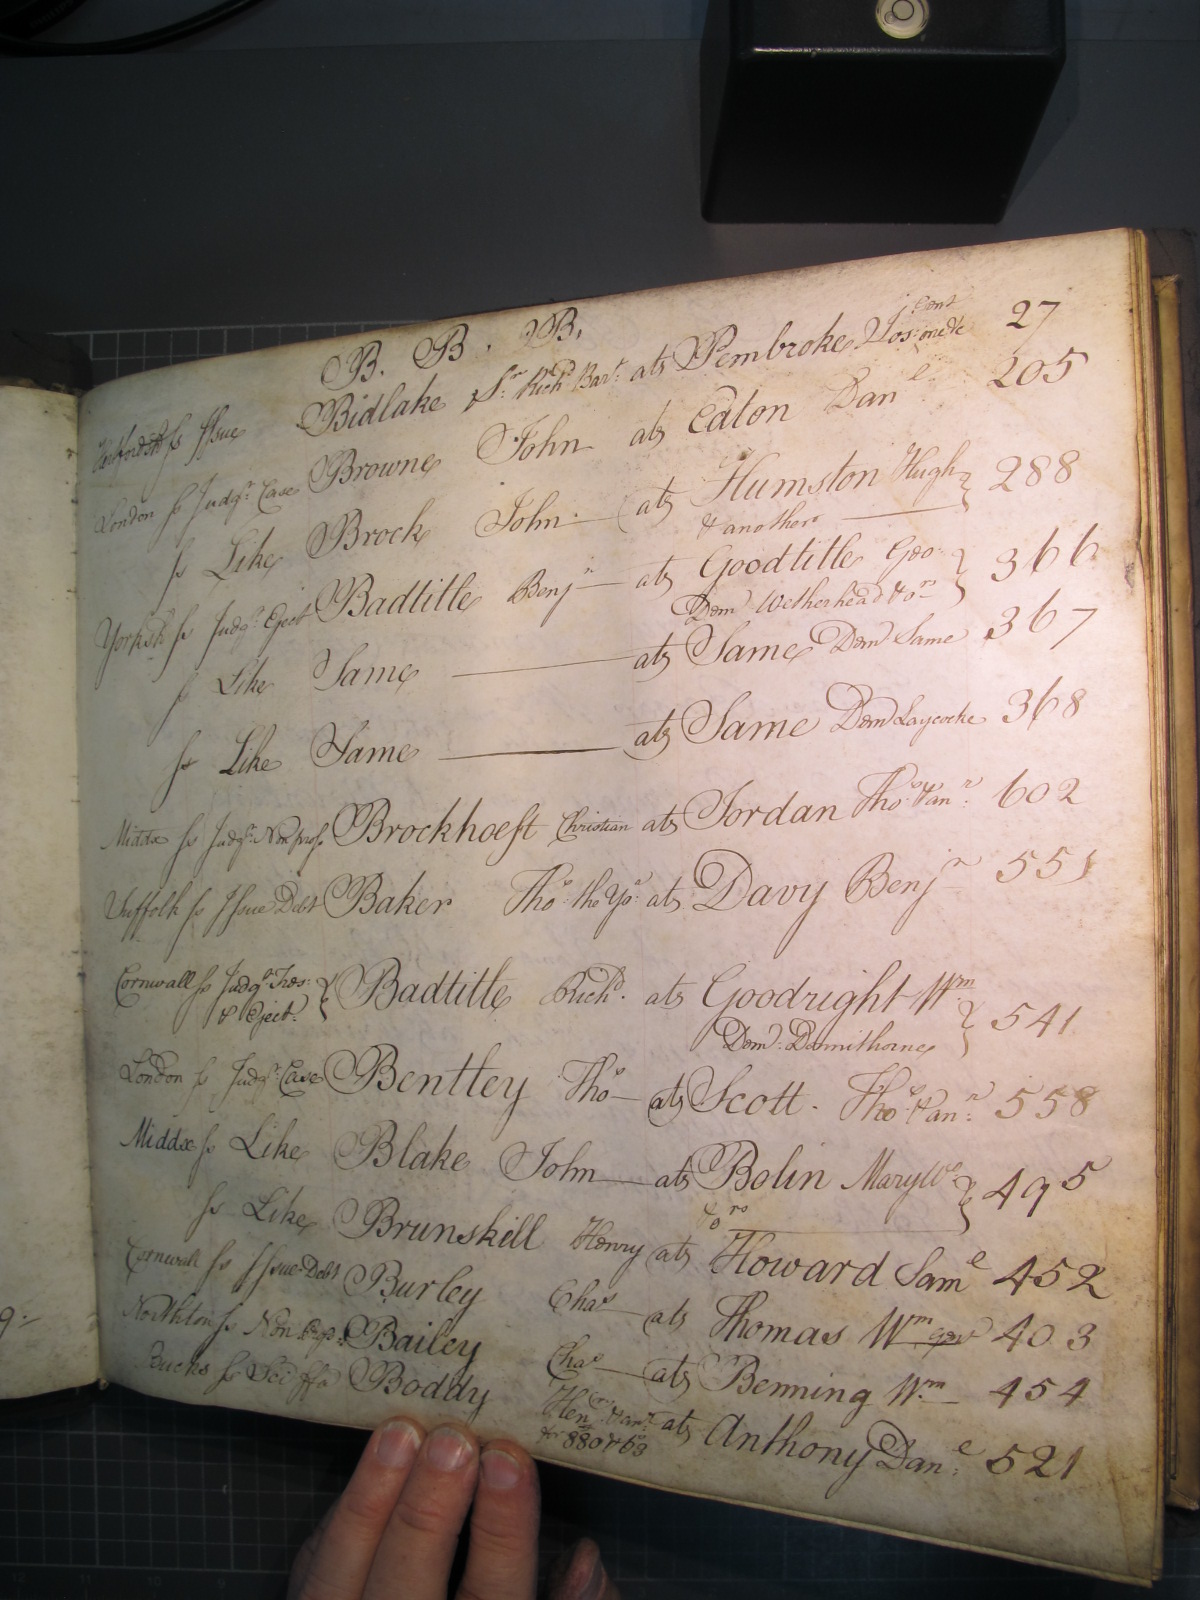 B. B. B.
Hertfordsh ss Issue Bidlake Sr. Richd. Bart. ats Pembroke Jos: 27
London ss Judgt. Case Browne John ats Eaton Danl 205
ss Like Brock John ats Humston Hugh 288
& another
Yorksh ss Judgt. Eject Badtitle Benjn ats Goodtitle Geo 366
Dem Wetherhead & ors
ss Like Same ats Same Dem Same 367
ss Like Same ats Same Dem Laycocke 368
Middx ss Judgt. Non pross Brockhoeft Christian ats Jordan Thos. & anr. 602
Suffolk ss Issue Debt Baker Thos. the Yor. ats Davy Benjn 551
Cornwall ss Judgt. Tres: Badtitle Richd. ats Goodright Wm
& Eject. Dem. Dennithorne 541
London ss Judgt. Case Bentley Thos ats Scott. Thos. & anr. 558
Middx ss Like Blake John ats Bolin Mary Wo 495
& ors
ss Like Brunskill Henry ats Howard Saml 452
Cornwall ss Issue Debt Burley Chas ats Thomas Wm 403
Northton ss Non Bailey Chas ats Benning Wm. 454
Bucks ss Sci ffa Boddy Hen & anr. ats Anthony Danl. 521
880 & 63
9:-